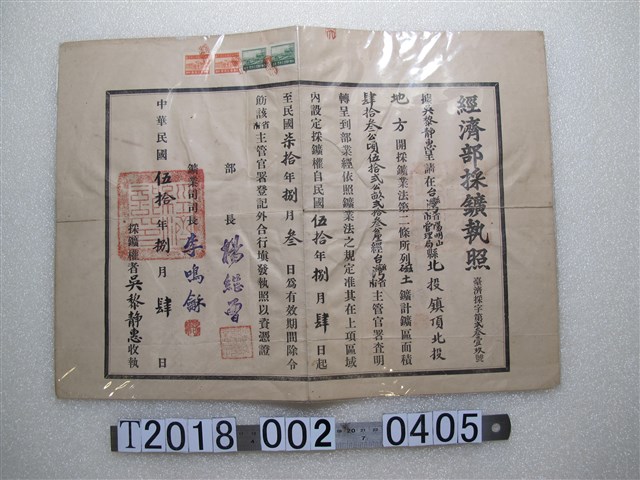 經濟部採鑛執照
臺濟採字第貳叁壹玖號
據吳黎靜惠呈請在台灣省陽明山管理局縣北投鎮頂北投
地方開採鑛業法第二條所列磁土鑛計鑛區面積
肆拾叁公頃伍拾貳公畝貳拾叁經台灣省主管官署查明
轉呈到部業經依照鑛業法之規定准其在上項區域
內設定採鑛權自民國伍拾年捌月肆日起
至民國柒拾年捌月叁日為有效期間除令
飭該省主管官署登記外合行填發執照以資憑證
部長楊繼曾
鑛業司司長李鳴龢
中華民國伍拾年捌月肆日
採鑛權者吳黎靜惠收執
T2018 002 0405